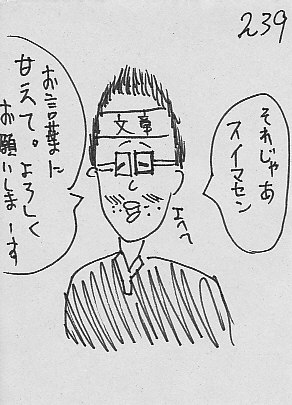 239
それじゃあ
スイマセン
文章
エヘヘ
お言葉に
甘えて。よろしく
お願いしまーす